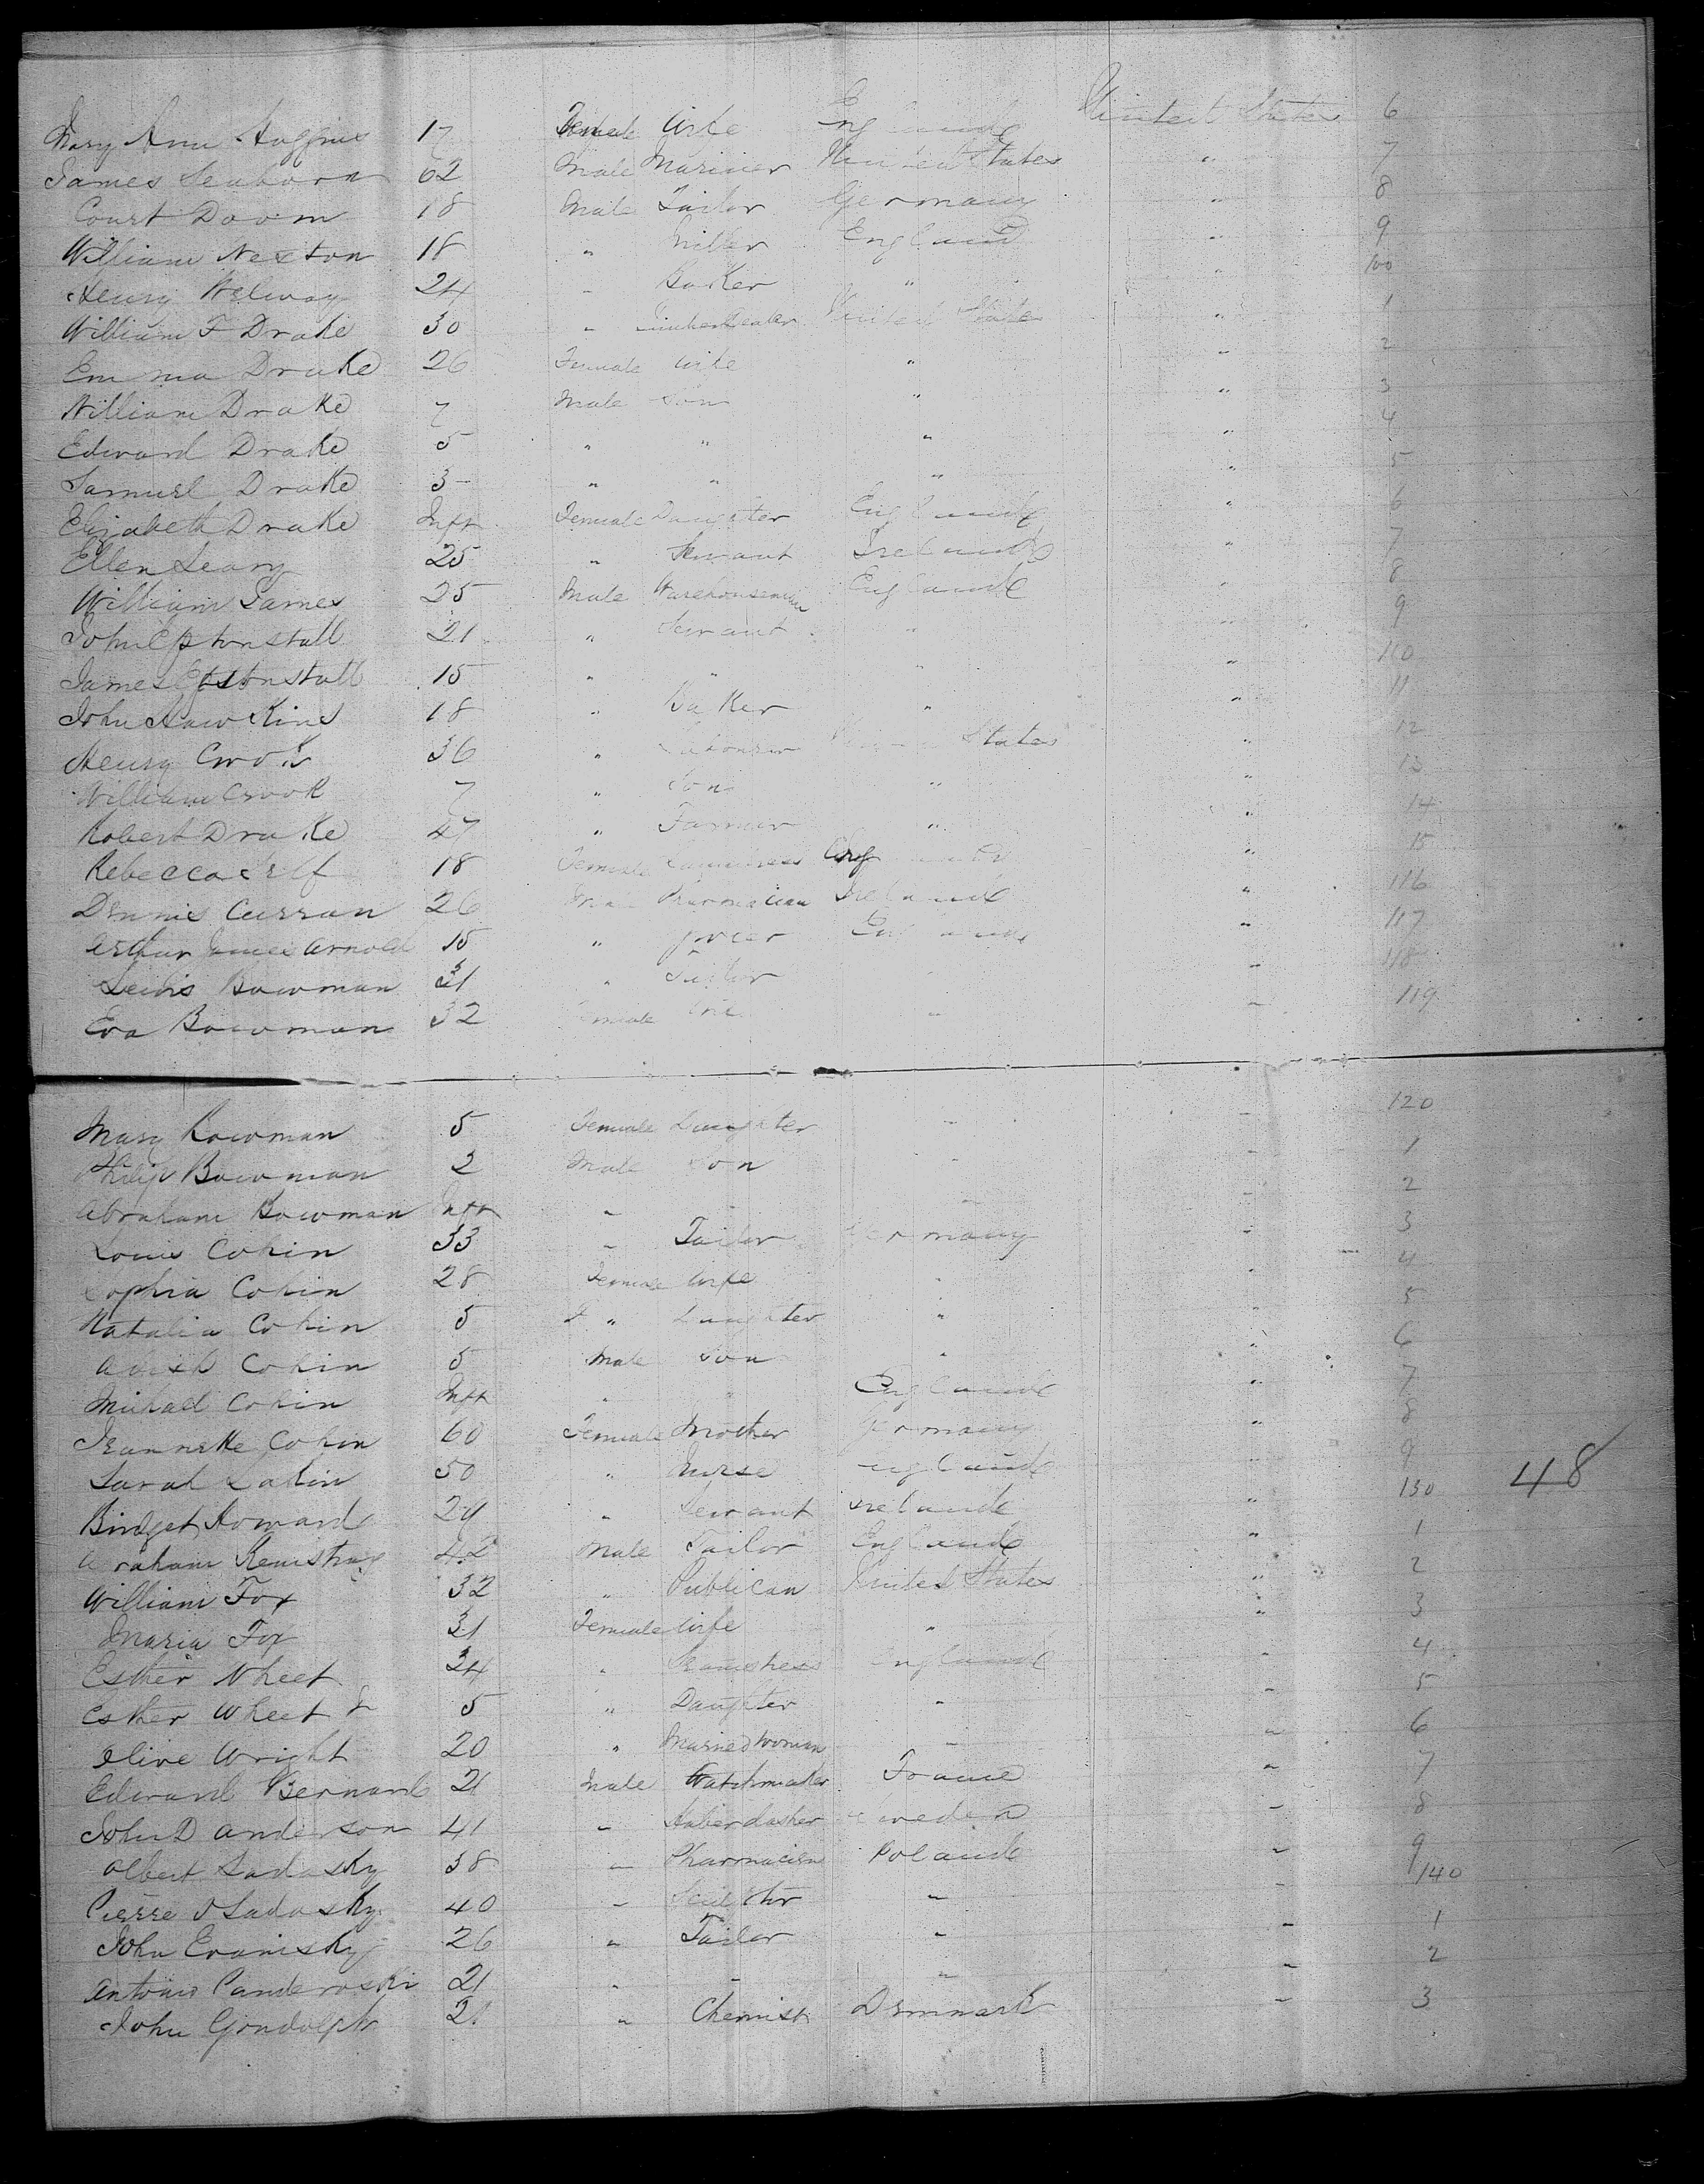 Mary Ann Huggins 17 Female Wife England United States 6
James Seaborn 62 Male Mariner United States " 7
Court Doom 18 Male Tailor Germany " 8
William Nexton 18 " Miller England " 9
Henry Welway 24 " Baker " " 100
William F Drake 30 " United States " 1
Emma Drake 26 Female Wife " " 2
William Drake 7 Male Son " " 3
Edward Drake 5 " " " " 4
Samuel Drake 3 " " " " 5
Elizabeth Drake Inft Female Daughter England " 6
Ellen Leary 25 " Servant Ireland " 7
William James 25 Male Warehouseman England " 8
John Eptonstall 21 " Servant " " 9
James Eptonstall 15 " " " " 110
John Hawkins 18 " Baker " " 11
Henry Crook 36 " Labourer United States " 12
William Crook 7 " Son " " 13
Robert Drake 47 " Farmer " " 14
Rebecca Self 18 Female England " 15
Dennis Curran 26 Male Pharmacian Ireland " 116
Arthur James Arnold 15 " grocer England " 117
Lewis Bowman 31 " Tailor " " 118
Eva Bowman 32 Female Wife " " 119
Mary Bowman 5 Female Daughter " " 120
Philip Bowman 2 Male Son " " 1
Abraham Bowman Inft " " " " 2
Louis Cohin 33 " Tailor Germany " 3
Sophia Cohin 28 Female Wife " " 4
Natalia Cohin 5 " Daughter " " 5
Cohin 5 Male Son " " 6
Michael Cohin Inft " " England " 7
Jeannette Cohin 60 Female Mother Germany " 8
Sarah Lakin 50 " Nurse England " 9
Bridget Howard 29 " Servant Ireland " 130 48
Abraham 42 Male Tailor England " 1
William Fox 32 " Publican United States " 2
Maria Fox 31 Female Wife " " 3
Esther Wheet 34 " Seamstress England " 4
Esther Wheet Jr 5 " Daughter " " 5
Olive Wright 20 " Married woman " " 6
Edward Bernard 21 Male Watchmaker France " 7
John D Anderson 41 " Haberdasher Sweden " 8
Albert Sadosky 38 " Pharmacien Poland " 9
Pierre Sadosky 40 " " " 140
John Evanisky 26 " Tailor " " 1
Antonio Panderoski 21 " " " " 2
John Gondolph 21 " Chemist Denmark " 3